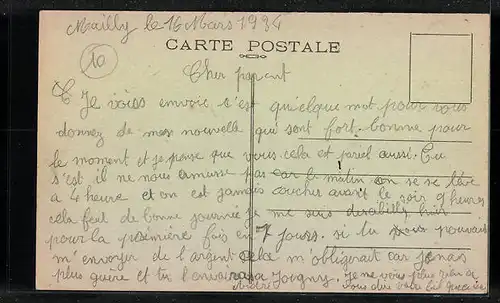 Mailly le 16 Mars 1934
CARTE POSTALE
10
Cher parent
Je vous envoie s'est quelque mot pour vous
donnez de mes nouvelle qui sont fort bonne pour
le moment et je pense que vous cela et pariel aussi. Ca
s'est il ne nous amuse pas car le matin on se se lève
a 4 heure et on est jamais coucher avant le soir 9 heures
cela fait de bonne journée je me suis désabillé hier
pour la premiere fois en 7 jours. si tu pouvais
m'envoyer de l'argent cela m'obligerait car j'en ais
plus guère et tu l'enverra a Joigny. Je ne vous plus rien a
André